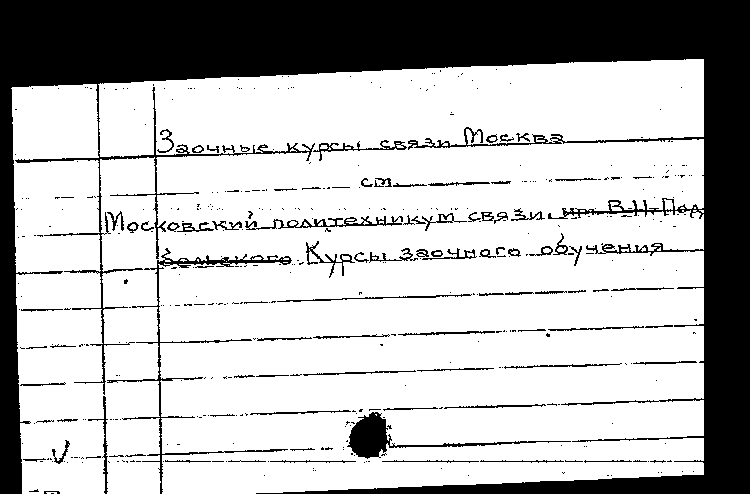 Заочные курсы связи Москва
см.
Московский политехникум связи. им. В.Н. Под
бельского Курсы заочного обучения